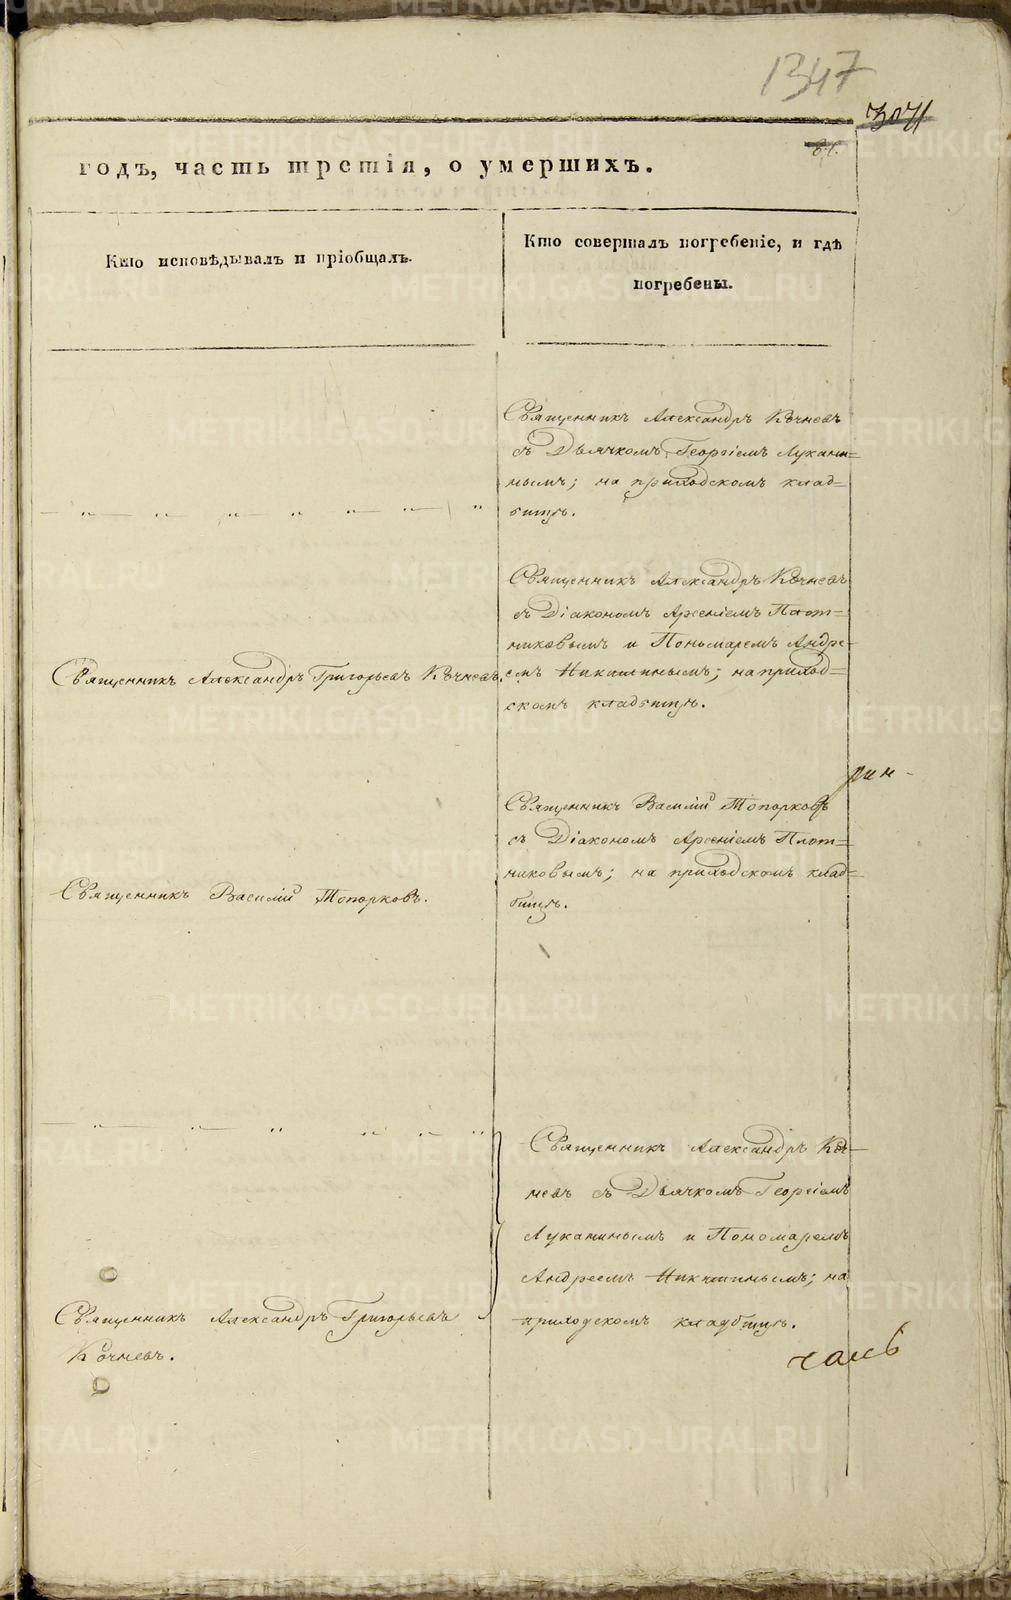 1347
307
81.
годъ, часть третія, о умершихъ.
Кто исповѣдывалъ и пріобщалъ.
Кто совершалъ погребеніе, и гдѣ
погребены.
Священникъ Александръ Кочневъ
съ Дьячкомъ Георгіемъ Лукани=
нымъ; на приходскомъ клад=
бищѣ.
Священникъ Александръ Григорьевъ Кочневъ.
Священникъ Александръ Кочневъ
съ Діакономъ Арсеніемъ Плот=
никовымъ и Пономаремъ Андре-
емъ Никитинымъ; на приход=
скомъ кладбищѣ.
Священникъ Василій Топорковъ.
Священникъ Василій Топорковъ
съ Діакономъ Арсеніемъ Плот=
никовымъ; на приходскомъ клад=
бищѣ.
Священникъ Александръ Григорьевъ
Кочневъ.
Священникъ Александръ Коч-
невъ съ Дьячкомъ Георгіемъ
Луканинымъ и Пономаремъ
Андреемъ Никитинымъ; на
приходскомъ кладбищѣ.
METRIKI.GASO-URAL.RU